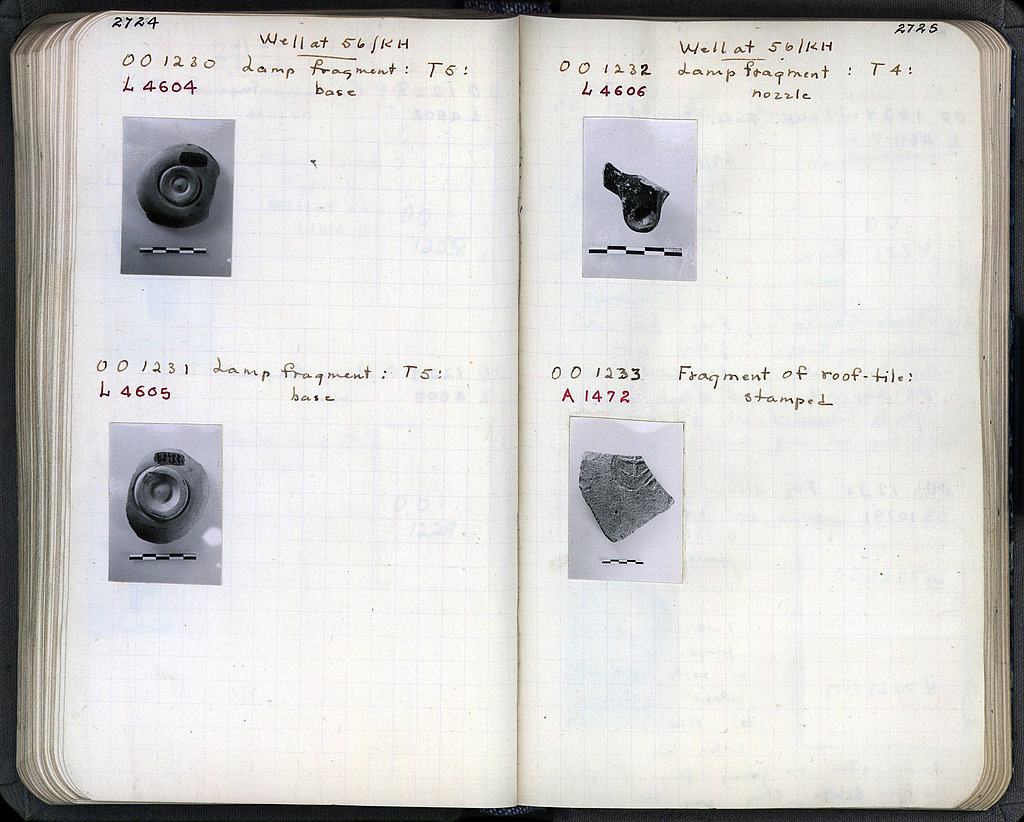 2724
Well at 56/KH
OO 1230 Lamp fragment: T5:
L 4604 base
OO 1231 Lamp fragment: T5:
L 4605 base
2725
Well at 56/KH
OO 1232 Lamp fragment : T4:
L 4606 nozzle
OO 1233 Fragment of roof-tile:
A 1472 stamped